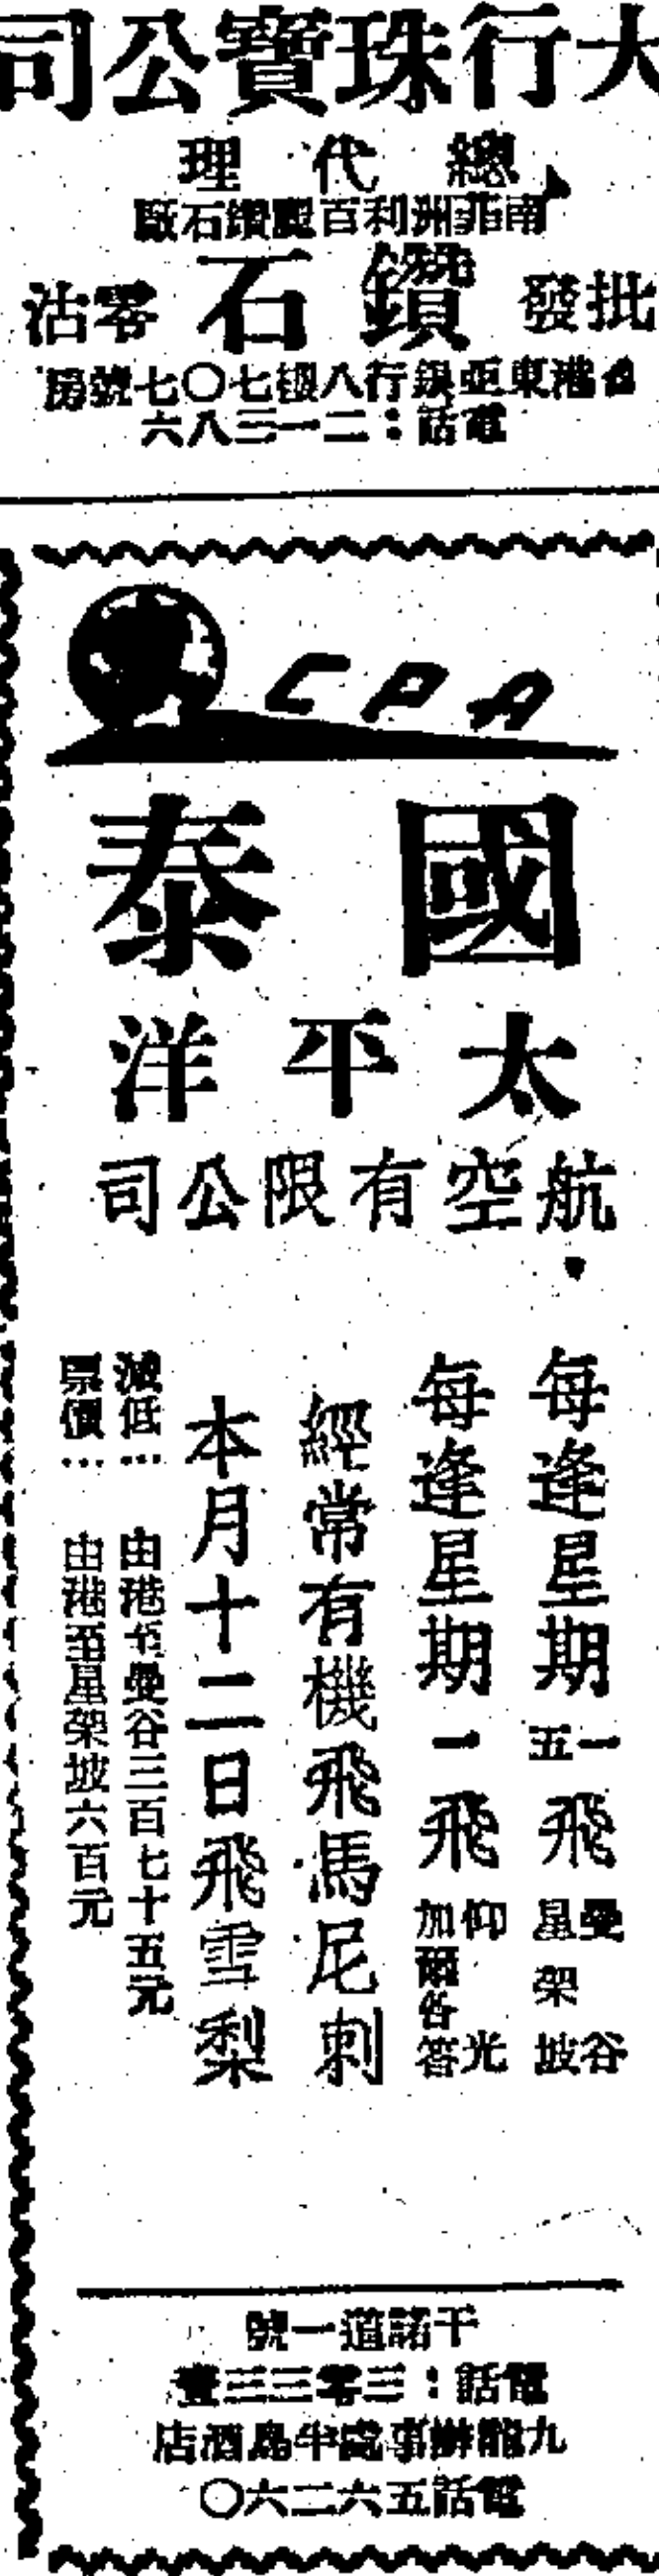 大行珠寶公司
總代理
南菲洲利百麗鑽石廠
批發 鑽石 零沽
香港東亞銀行八樓七〇七號房
電話：二一三八六
CPA
國泰
太平洋
航空有限公司
每逢星期一五飛曼谷星架坡
每逢星期一飛仰光加爾各答
經常有機飛馬尼剌
本月十二日飛雪梨
減低…由港至曼谷三百七十五元
票價…由港至星架坡六百元
干諾道一號
電話：三零三三壹
九龍辦事處半島酒店
電話五六二六〇